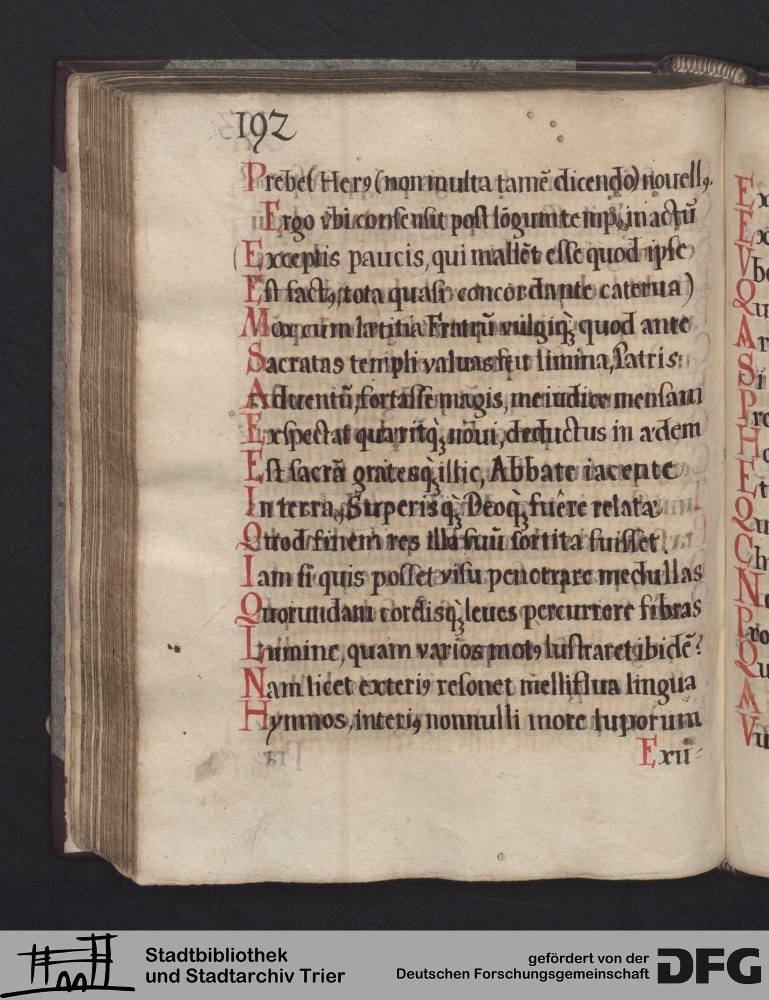 192
Prebet Herꝰ (non multa tamē dicendo) nouellꝰ.
Ergo vbi consensit post lōgum temp9 in actū
(Exceptis paucis, qui mallēt esse quod ipse
Est factꝰ, tota quasi concordante caterua)
Mox cum lætitia Fratrū vulgiq́ꝫ quod ante
Sacratas templi valuas seu limina, Patris
Aduentū, fortasse magis, me iudice mensam
Exspectat quæritq́ꝫ noui, deductus in ædem
Est sacrā gratesq́ꝫ illic, Abbate iacente
In terra, Superisq́ꝫ Deoq́ꝫ fuêre relatæ
Quod finem res illa suū sortita fuisset.
Iam si quis posset visu penetrare medullas
Quorundam cordisq́ꝫ leues percurrere fibras
Lumine, quam varios motꝰ lustraret ibidē?
Nam licet exteriꝰ resonet melliflua lingua
Hymnos, interiꝰ nonnulli more luporum
Exu=
Ex
Ex
Vb
Qu
Ar
Si
Pro
H
Et
Qu
Ch
N
Pro
Qu
A
Vu
Stadtbibliothek
und Stadtarchiv Trier
gefördert von der
Deutschen Forschungsgemeinschaft
DFG